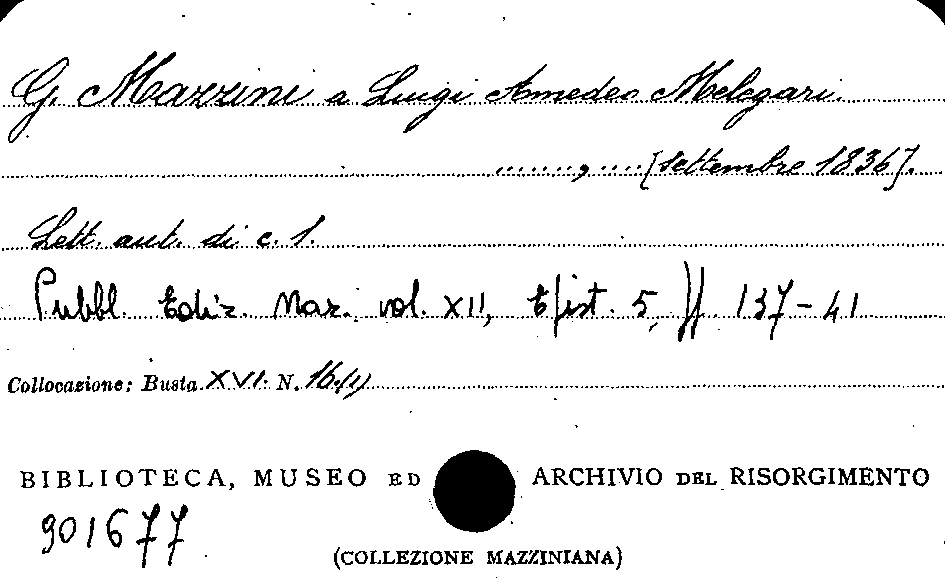 G. Mazzini a Luigi Amedeo Melegari.
........, ....[settembre 1836].
Lett. aut. di c. 1.
Pubbl. Ediz. Naz. vol. XII, Epist. 5, pp. 137-41
Collocazione: Busta XVI. N. 16.(1)
BIBLIOTECA, MUSEO ED ARCHIVIO DEL RISORGIMENTO
901677
(COLLEZIONE MAZZINIANA)